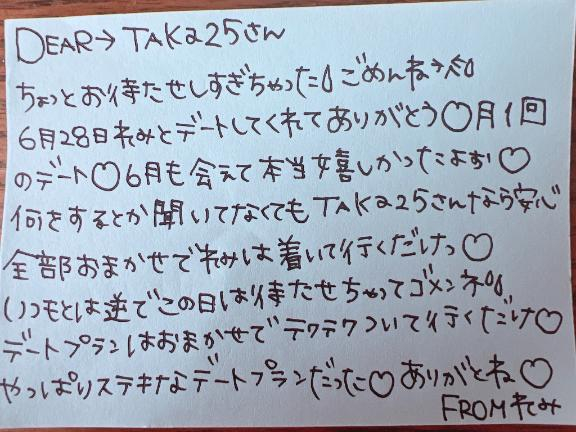 DEAR→TAKa25さん
ちょっとお待たせしすぎちゃった!! ごめんね
6月28日れみとデートしてくれてありがとう♡月1回
のデート♡6月も会えて本当嬉しかったよぉ♡
何をするとか聞いてなくてもTAKa25さんなら安心
全部おまかせでれみは着いて行くだけっ♡
いつもとは逆でこの日は待たせちゃってゴメンネ!!
デートプランはおまかせでテクテクついて行くだけ♡
やっぱりステキなデートプランだった♡ありがとね♡
FROMれみ